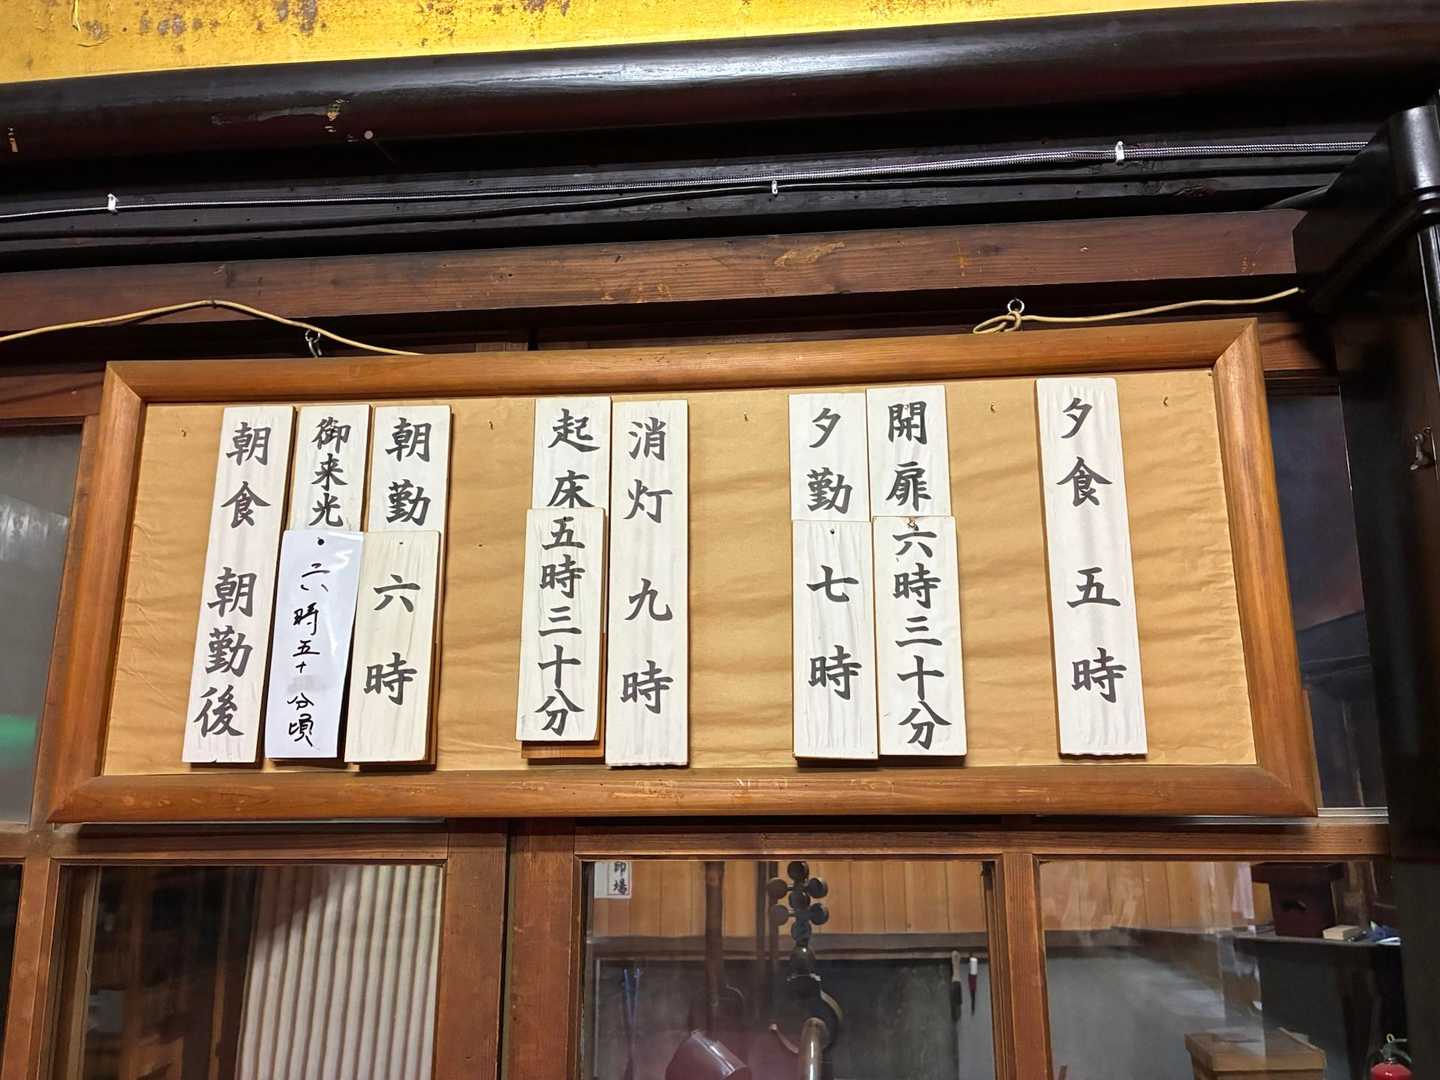 夕食 五時
開扉 六時三十分
夕勤 七時
消灯 九時
起床 五時三十分
朝勤 六時
御来光 六時五十分頃
朝食 朝勤後